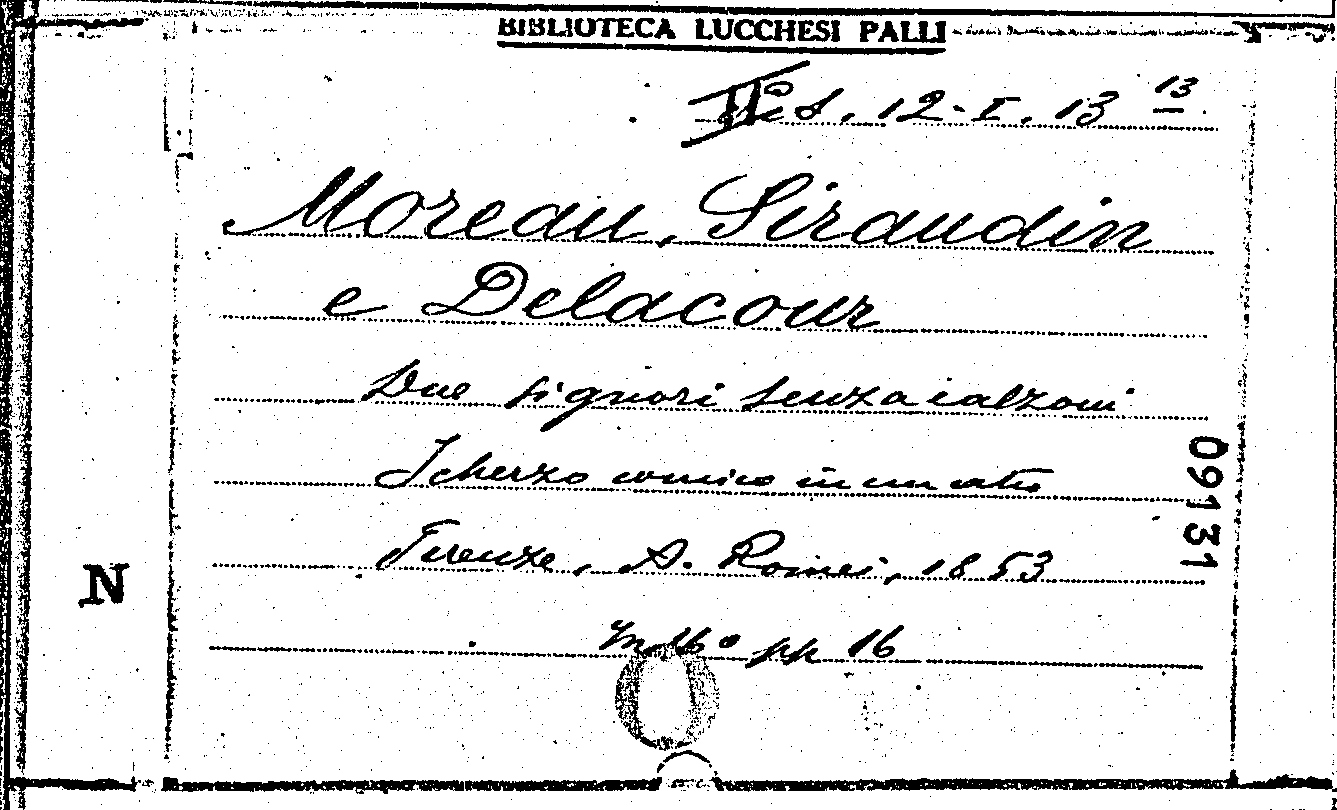 BIBLIOTECA LUCCHESI PALLI
12-I. 13 13
Moreau, Siraudin
e Delacour
Due signori senza calzoni
Scherzo comico in un atto
Firenze, A. Romei, 1853
in 16º pp 16
09131
N